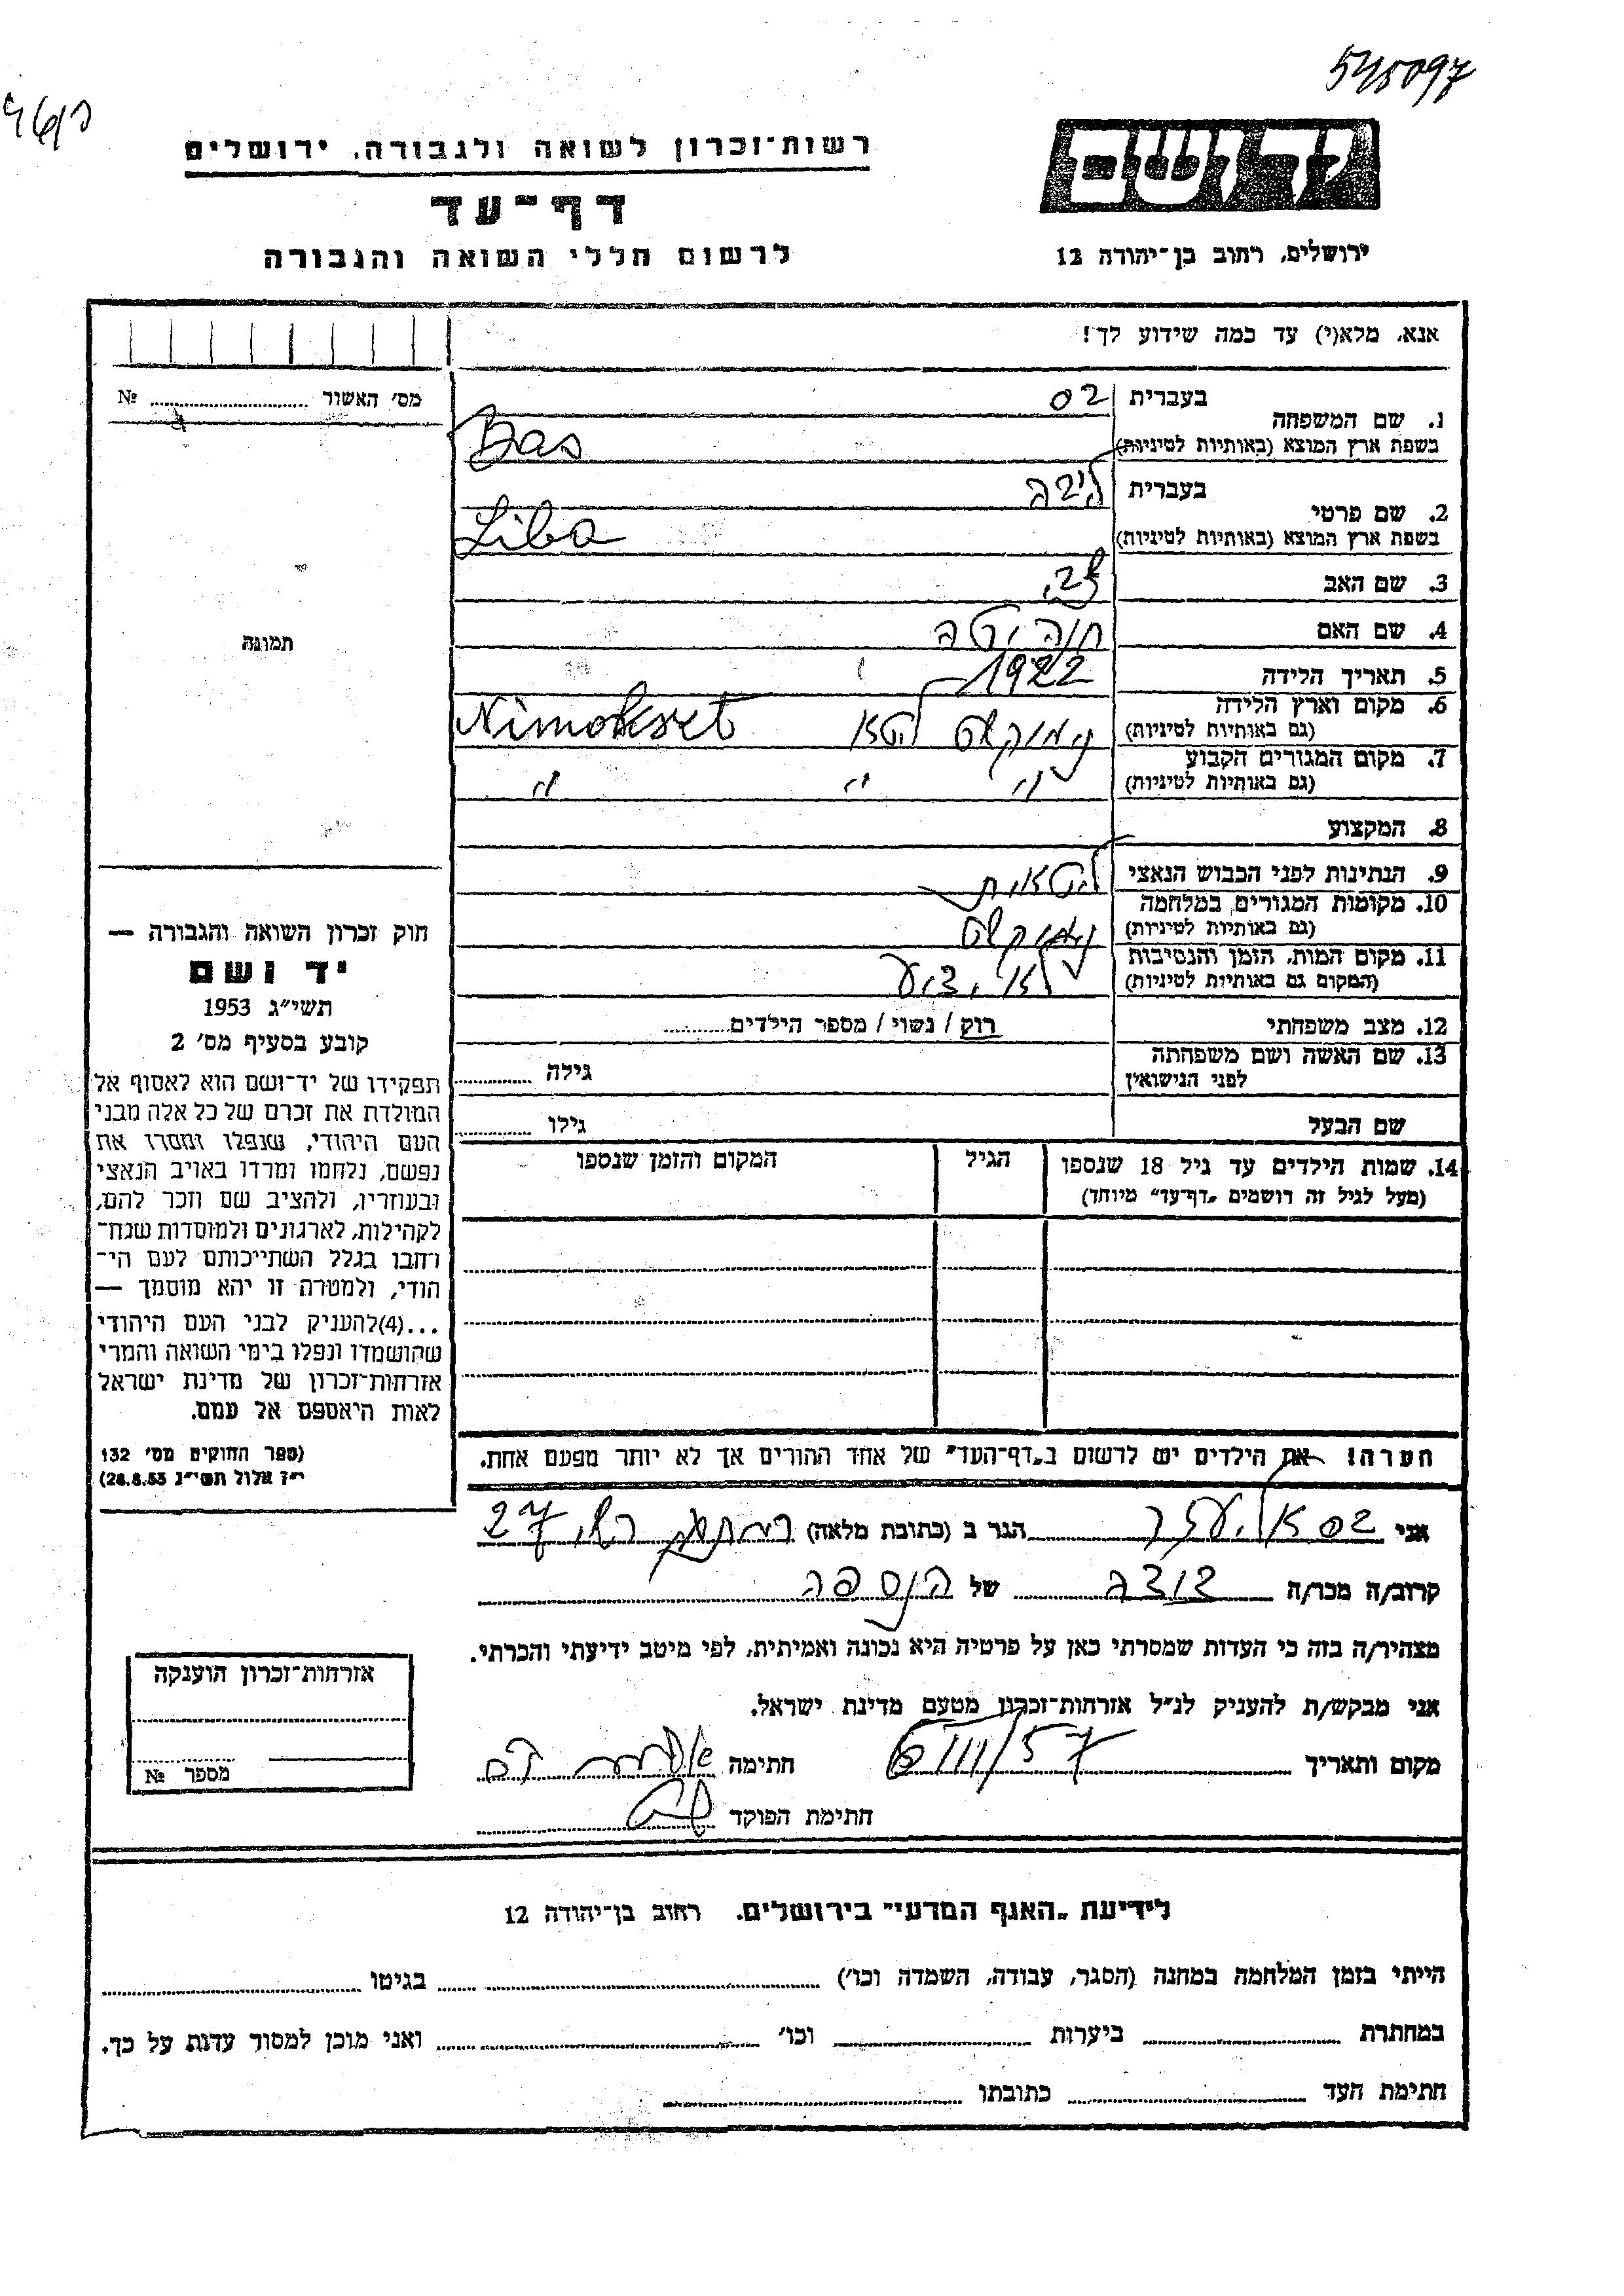 545097
רשות־זכרון לשואה ולגבורה, ירושלים
דף־עד
לרשום חללי השואה והגבורה
ידושם
ירושלים, רחוב בן־יהודה 12
אנא, מלא(י) עד כמה שידוע לך!
מס׳ האשור № 
1. שם המשפחה
בעברית בס
בשפת ארץ המוצא (באותיות לטיניות) Bas
2. שם פרטי
בעברית ליבה
בשפת ארץ המוצא (באותיות לטיניות) Liba
3. שם האב
4. שם האם חוה יטה
5. תאריך הלידה 1922
6. מקום וארץ הלידה
(גם באותיות לטיניות) נימוקשט ליטא Nimokset
7. מקום המגורים הקבוע
(גם באותיות לטיניות) " " "
8. המקצוע
9. הנתינות לפני הכבוש הנאצי ליטאית
10. מקומות המגורים במלחמה
(גם באותיות לטיניות) נימוקשט
11. מקום המות, הזמן והנסיבות
(המקום גם באותיות לטיניות) לא ידוע
12. מצב משפחתי רוק / נשוי / מספר הילדים
13. שם האשה ושם משפחתה
לפני הנישואין גילה
שם הבעל גילו
14. שמות הילדים עד גיל 18 שנספו
(מעל לגיל זה רושמים „דף־עד״ מיוחד)
הגיל
המקום והזמן שנספו
הערה! את הילדים יש לרשום ב„דף־העד״ של אחד ההורים אך לא יותר מפעם אחת.
תמונה
חוק זכרון השואה והגבורה —
יד ושם
תשי״ג 1953
קובע בסעיף מס׳ 2
תפקידו של יד־ושם הוא לאסוף אל
המולדת את זכרם של כל אלה מבני
העם היהודי, שנפלו ומסרו את
נפשם, נלחמו ומרדו באויב הנאצי
ובעוזריו, ולהציב שם וזכר להם,
לקהילות, לארגונים ולמוסדות שנח־
רחבו בגלל השתייכותם לעם הי־
הודי, ולמטרה זו יהא מוסמך —
...(4)להעניק לבני העם היהודי
שהושמדו ונפלו בימי השואה והמרי
אזרחות־זכרון של מדינת ישראל
לאות היאספם אל עמם.
(ספר החוקים מס׳ 132
י״ז אלול תשי״ג 28.8.53)
אני בס אליעזר הגר ב (כתובת מלאה) 27
קרוב/ה מכר/ה של הנספה
מצהיר/ה בזה כי העדות שמסרתי כאן על פרטיה היא נכונה ואמיתית, לפי מיטב ידיעתי והכרתי.
אני מבקש/ת להעניק לנ״ל אזרחות־זכרון מטעם מדינת ישראל.
מקום ותאריך 6/III/57 חתימה
חתימת הפוקד
אזרחות־זכרון הוענקה
מספר №
לידיעת „האגף המדעי״ בירושלים, רחוב בן־יהודה 12
הייתי בזמן המלחמה במחנה (הסגר, עבודה, השמדה וכו׳) בגיטו
במחתרת ביערות וכו׳ ואני מוכן למסור עדות על כך.
חתימת העד כתובתו